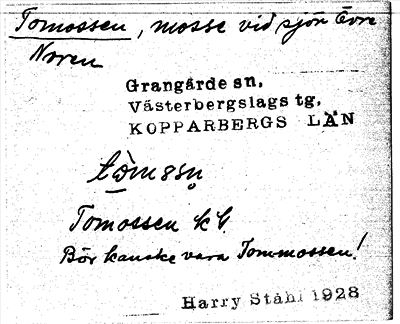 Tomossen, mosse vid sjön Övre
Noren
Grangärde sn,
Västerbergslags tg,
KOPPARBERGS LÄN
Tomossen kG.
Bör kanske vara Tommossen!
Harry Ståhl 1928